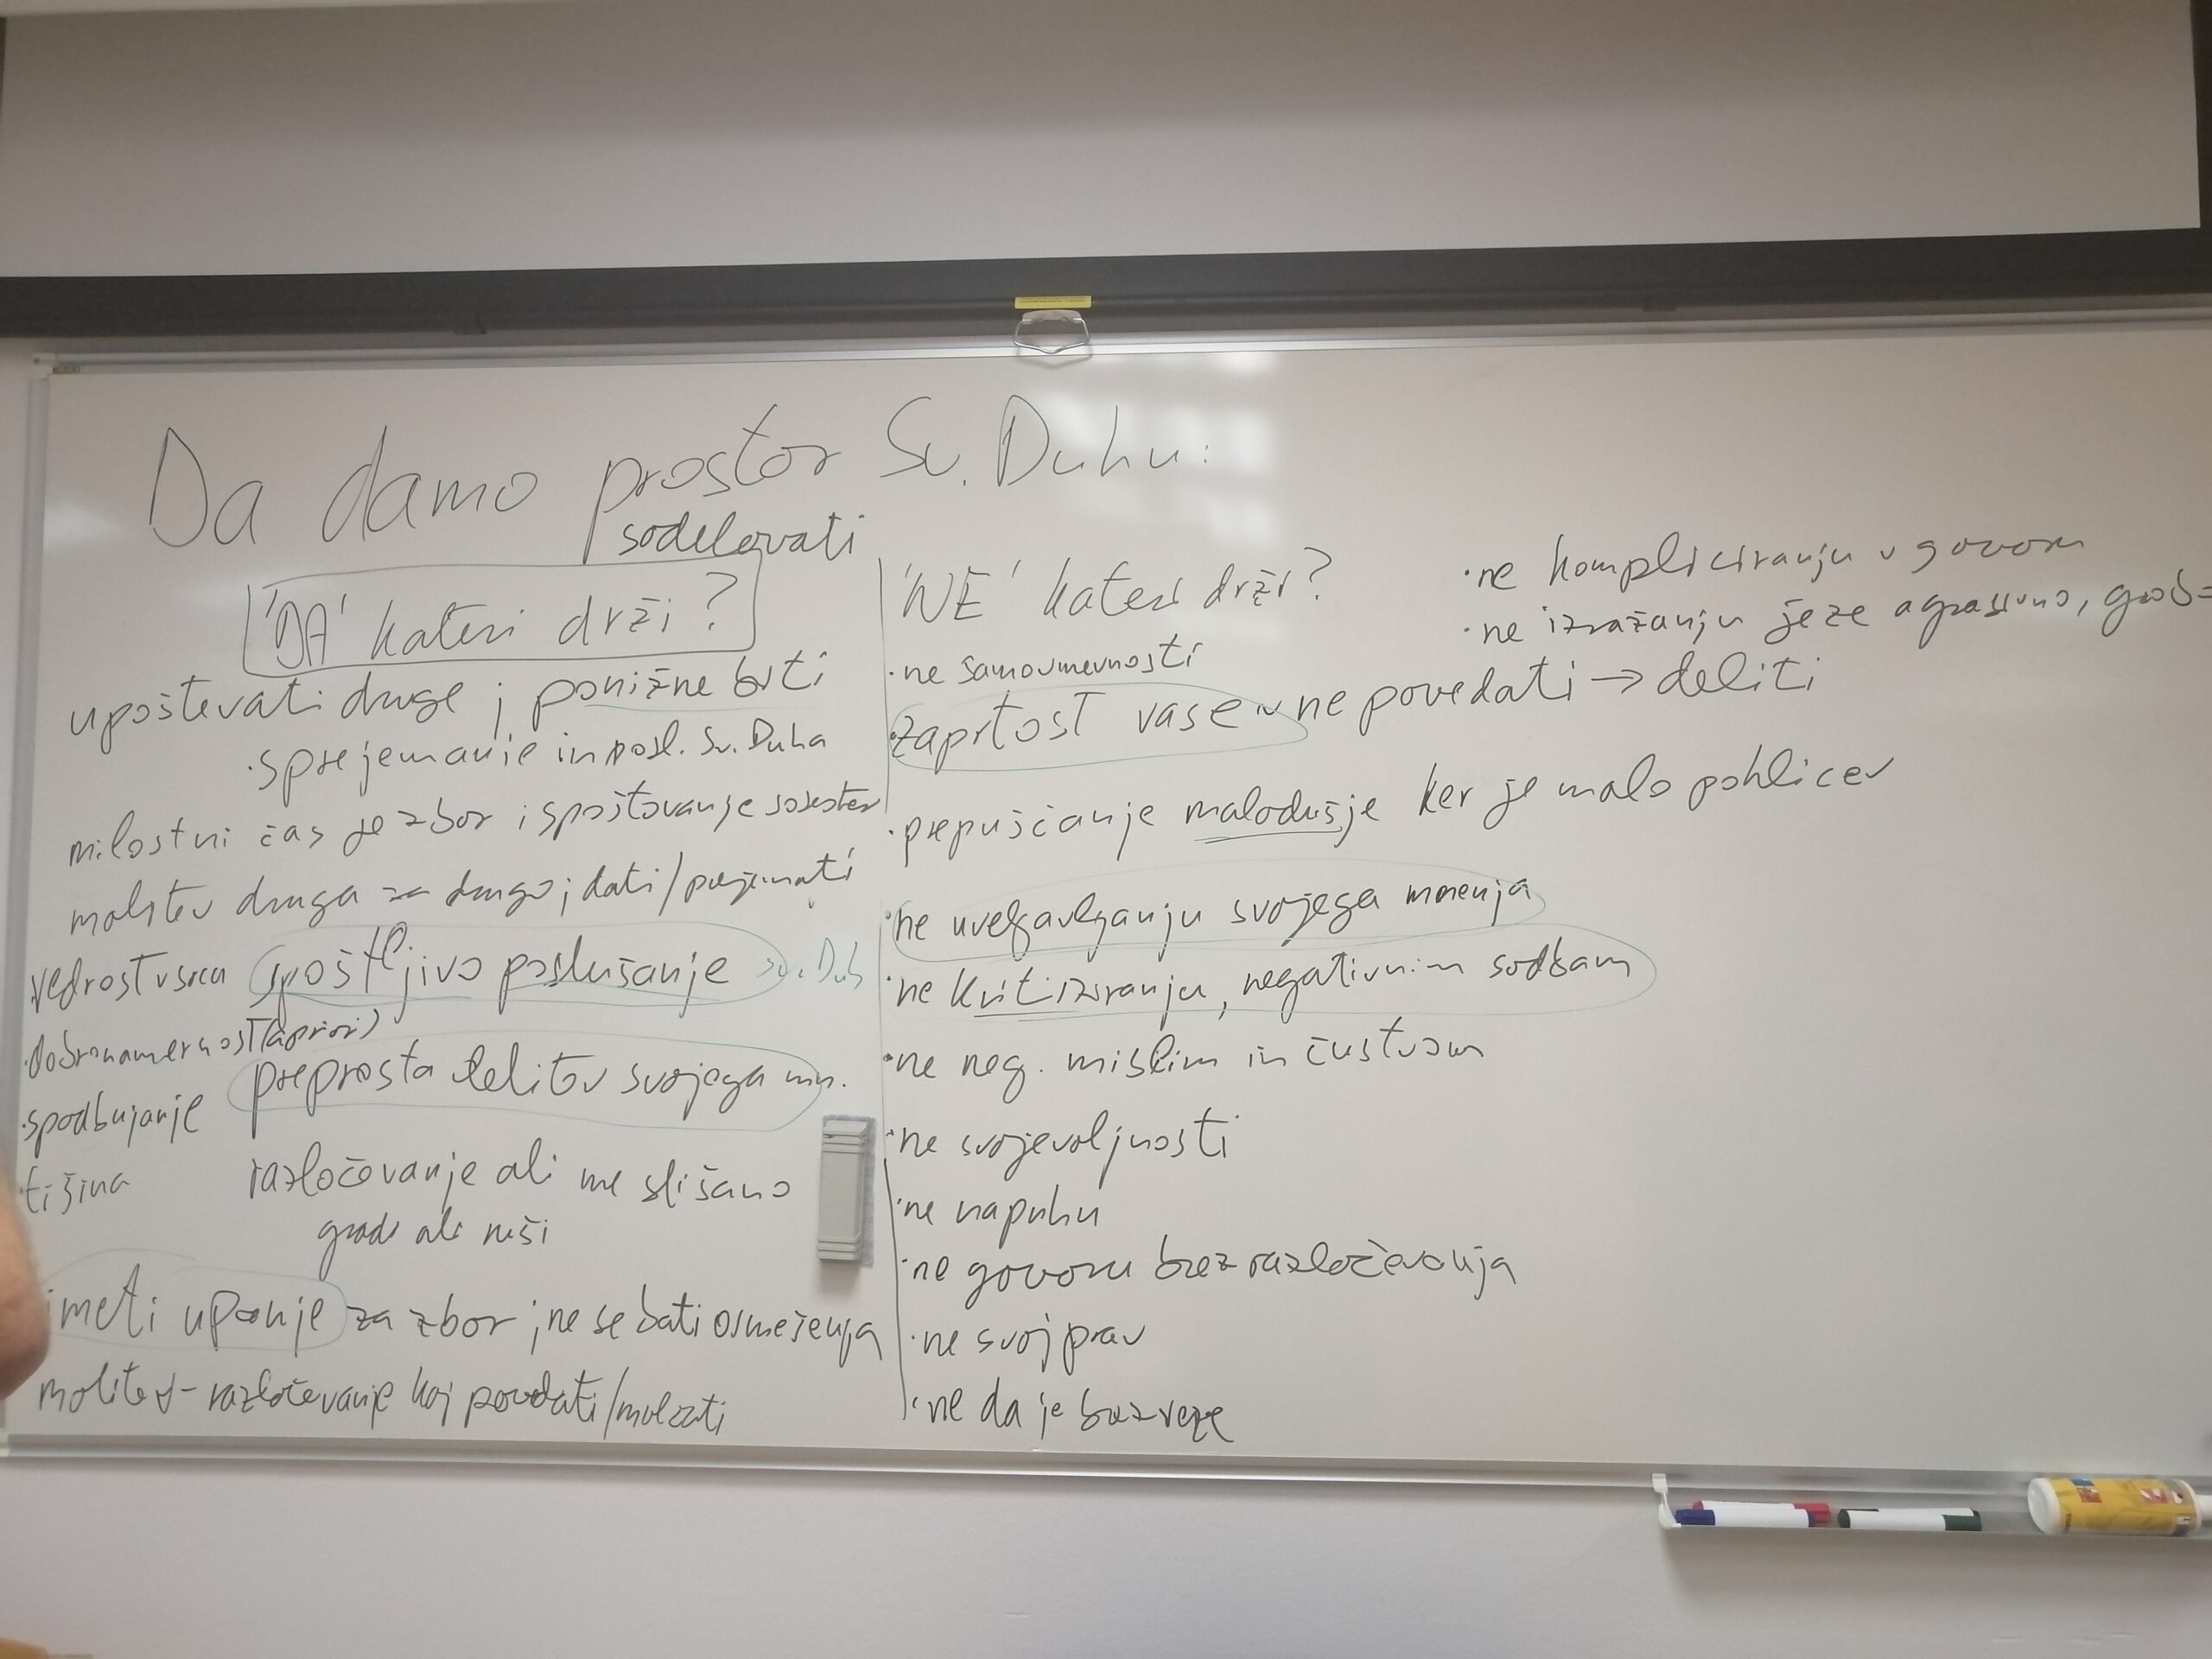 Da damo prostor Sv. Duhu:
sodelovati
'DA' kateri drži?
upoštevati druge; ponižne biti
·sprejemanje in posl. Sv. Duha
milostni čas je zbor; spoštovanje sosester
molitev druga za drugo; dati/prejemati
vedrost v srcu spoštljivo poslušanje sv. Duh
·dobronamernost (apriori)
preprosta delitev svojega mn.
·spodbujanje
·tišina
razločevanje ali me slišano
gradi ali ruši
imeti upanje za zbor; ne se bati osmešenja
molitev - razločevanje kaj povedati/molčati
'NE' kateri drži?
·ne samoumevnosti
·zaprtost vase ~ ne povedati → deliti
·prepuščanje malodušje ker je malo poklicev
·ne uveljavljanju svojega mnenja
·ne kritiziranju, negativnim sodbam
·ne neg. mislim in čustvom
·ne svojevoljnosti
·ne napuhu
·ne govoru brez razločevanja
·ne svoj prav
·ne da je brezveze
·ne kompliciranju v govoru
·ne izražanju jeze agresivno, grob=